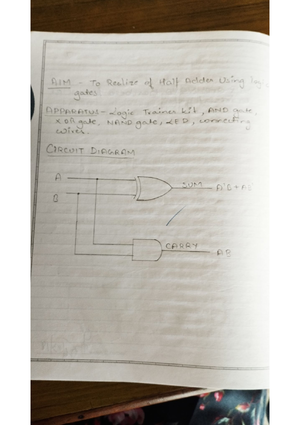 AIM - To Realize of Half Adder Using
gates
APPARATUS - Logic Trainer kit, AND gate,
XOR gate, NAND gate, LED, connecting
wires.
CIRCUIT DIAGRAM
A
B
SUM
CARRY
AB